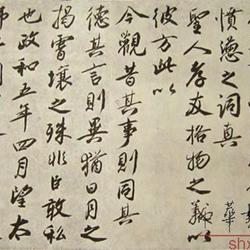 華
憤懣之詞真
聖人存友拾物之義以
彼方此以
今觀昔其事則同其
德其言則異猶日月之
揭霄壤之殊非曰敢私
也政和五年四月望太
shx